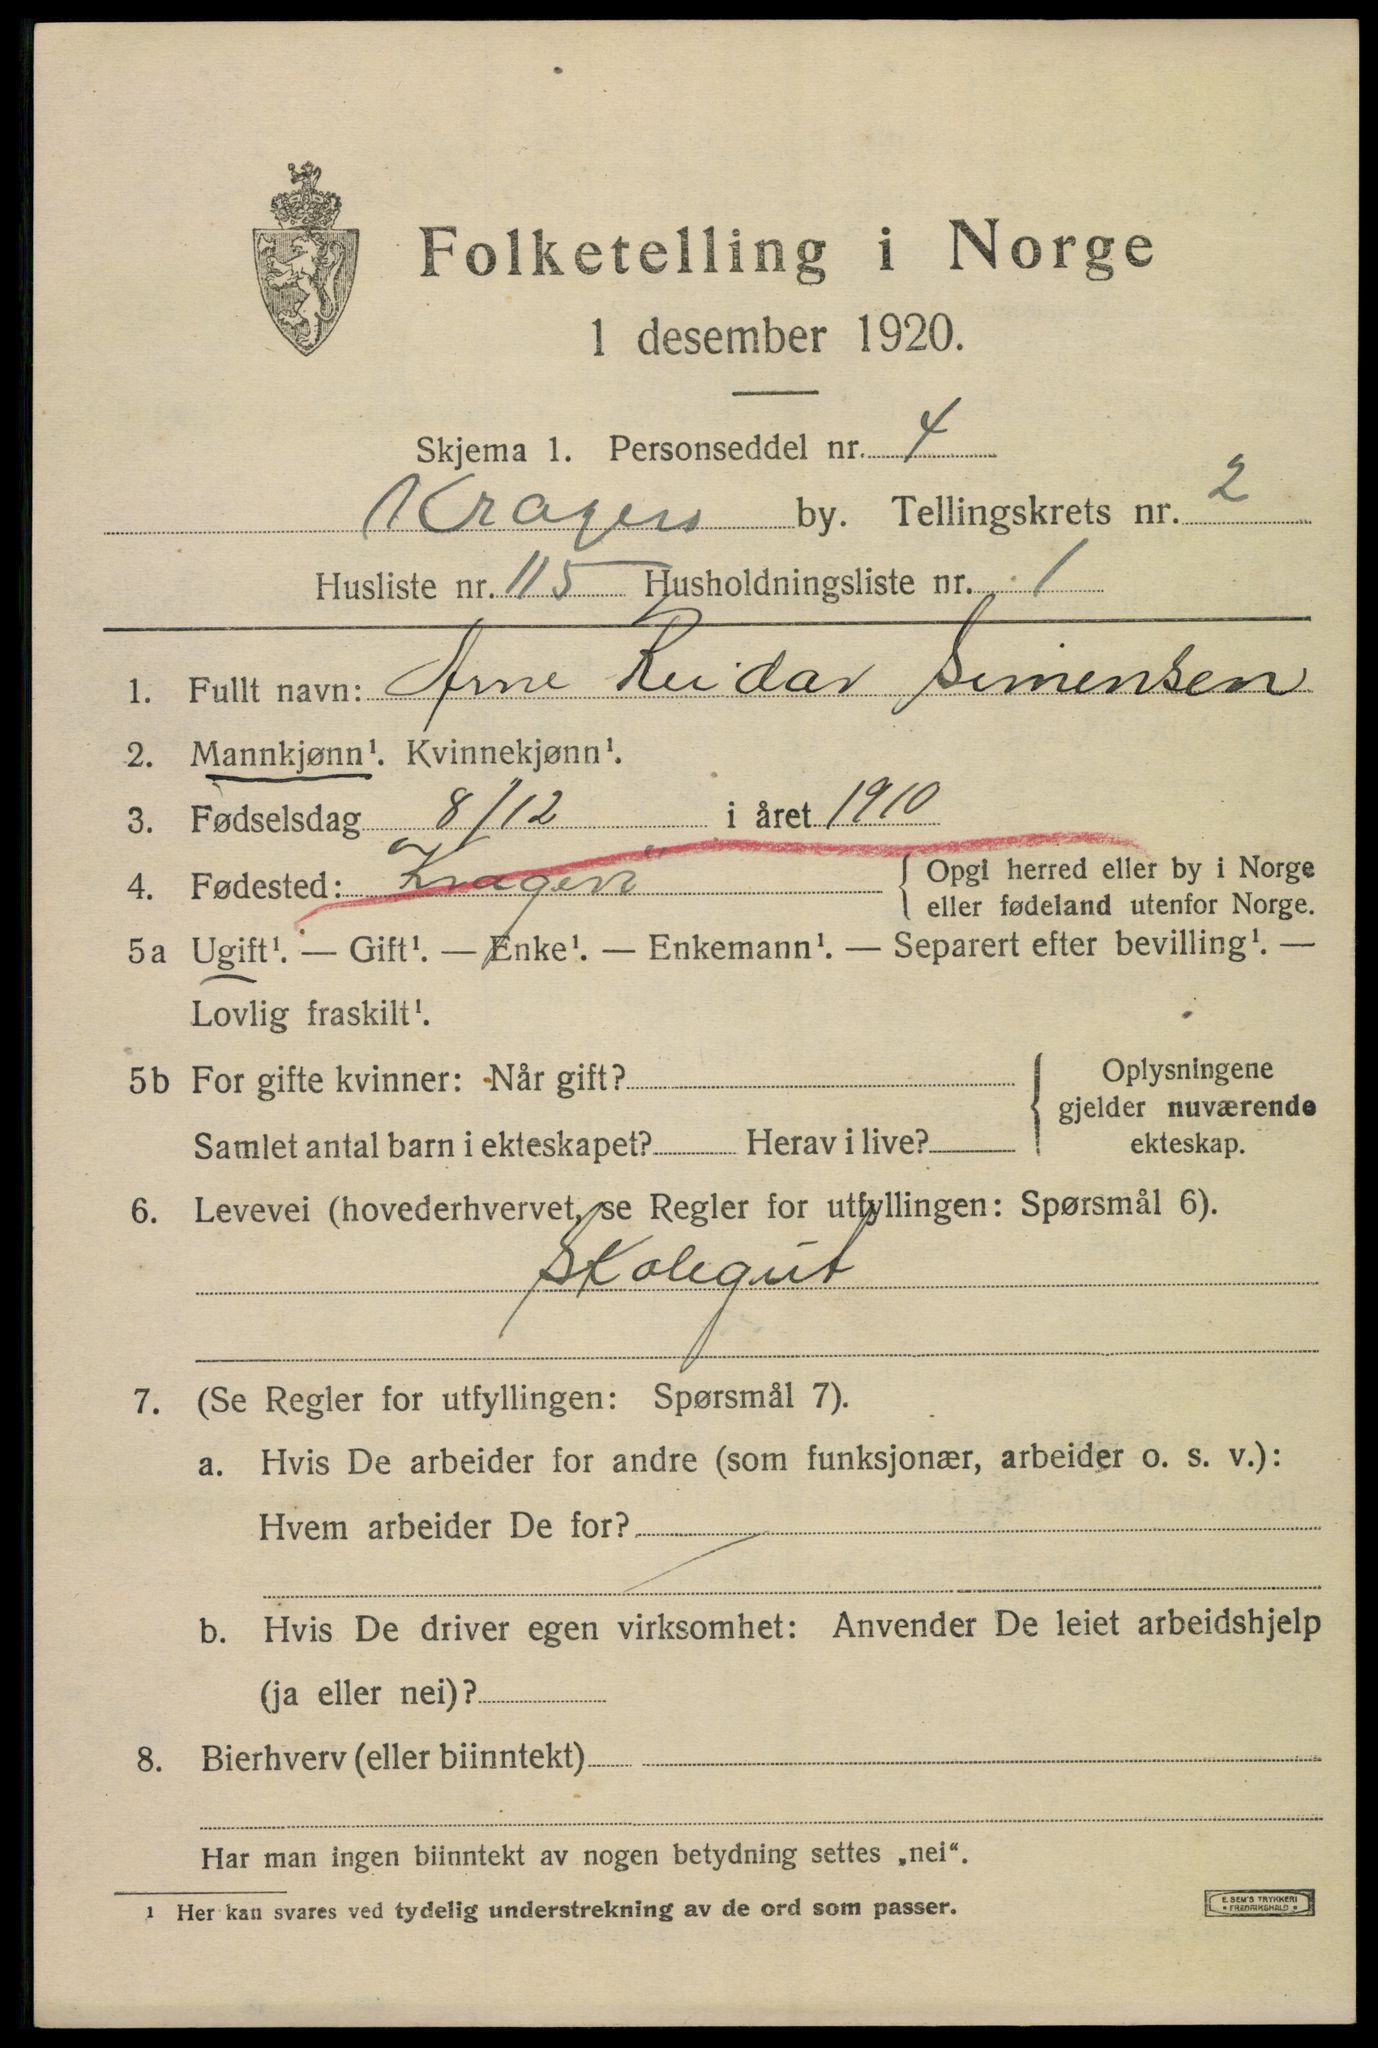 Folketelling i Norge
1 desember 1920.
Skjema 1. Personseddel nr. 4
Kragerø by. Tellingskrets nr. 2
Husliste nr. 115 Husholdningsliste nr. 1
1. Fullt navn: Arne Reidar Simensen
2. Mannkjønn¹. Kvinnekjønn¹.
3. Fødselsdag 8/12 i året 1910
4. Fødested: Kragerö { Opgi herred eller by i Norge
eller fødeland utenfor Norge.
5a Ugift¹. — Gift¹. — Enke¹. — Enkemann¹. — Separert efter bevilling¹. —
Lovlig fraskilt¹.
5b For gifte kvinner: Når gift? { Oplysningene
gjelder nuværende
Samlet antal barn i ekteskapet? Herav i live? ekteskap.
6. Levevei (hovederhvervet, se Regler for utfyllingen: Spørsmål 6).
Skolegut
7. (Se Regler for utfyllingen: Spørsmål 7).
a. Hvis De arbeider for andre (som funksjonær, arbeider o. s. v.):
Hvem arbeider De for?
b. Hvis De driver egen virksomhet: Anvender De leiet arbeidshjelp
(ja eller nei)?
8. Bierhverv (eller biinntekt)
Har man ingen biinntekt av nogen betydning settes „nei“.
¹ Her kan svares ved tydelig understrekning av de ord som passer.
E. SEM'S TRYKKERI
• FREDRIKSHALD •